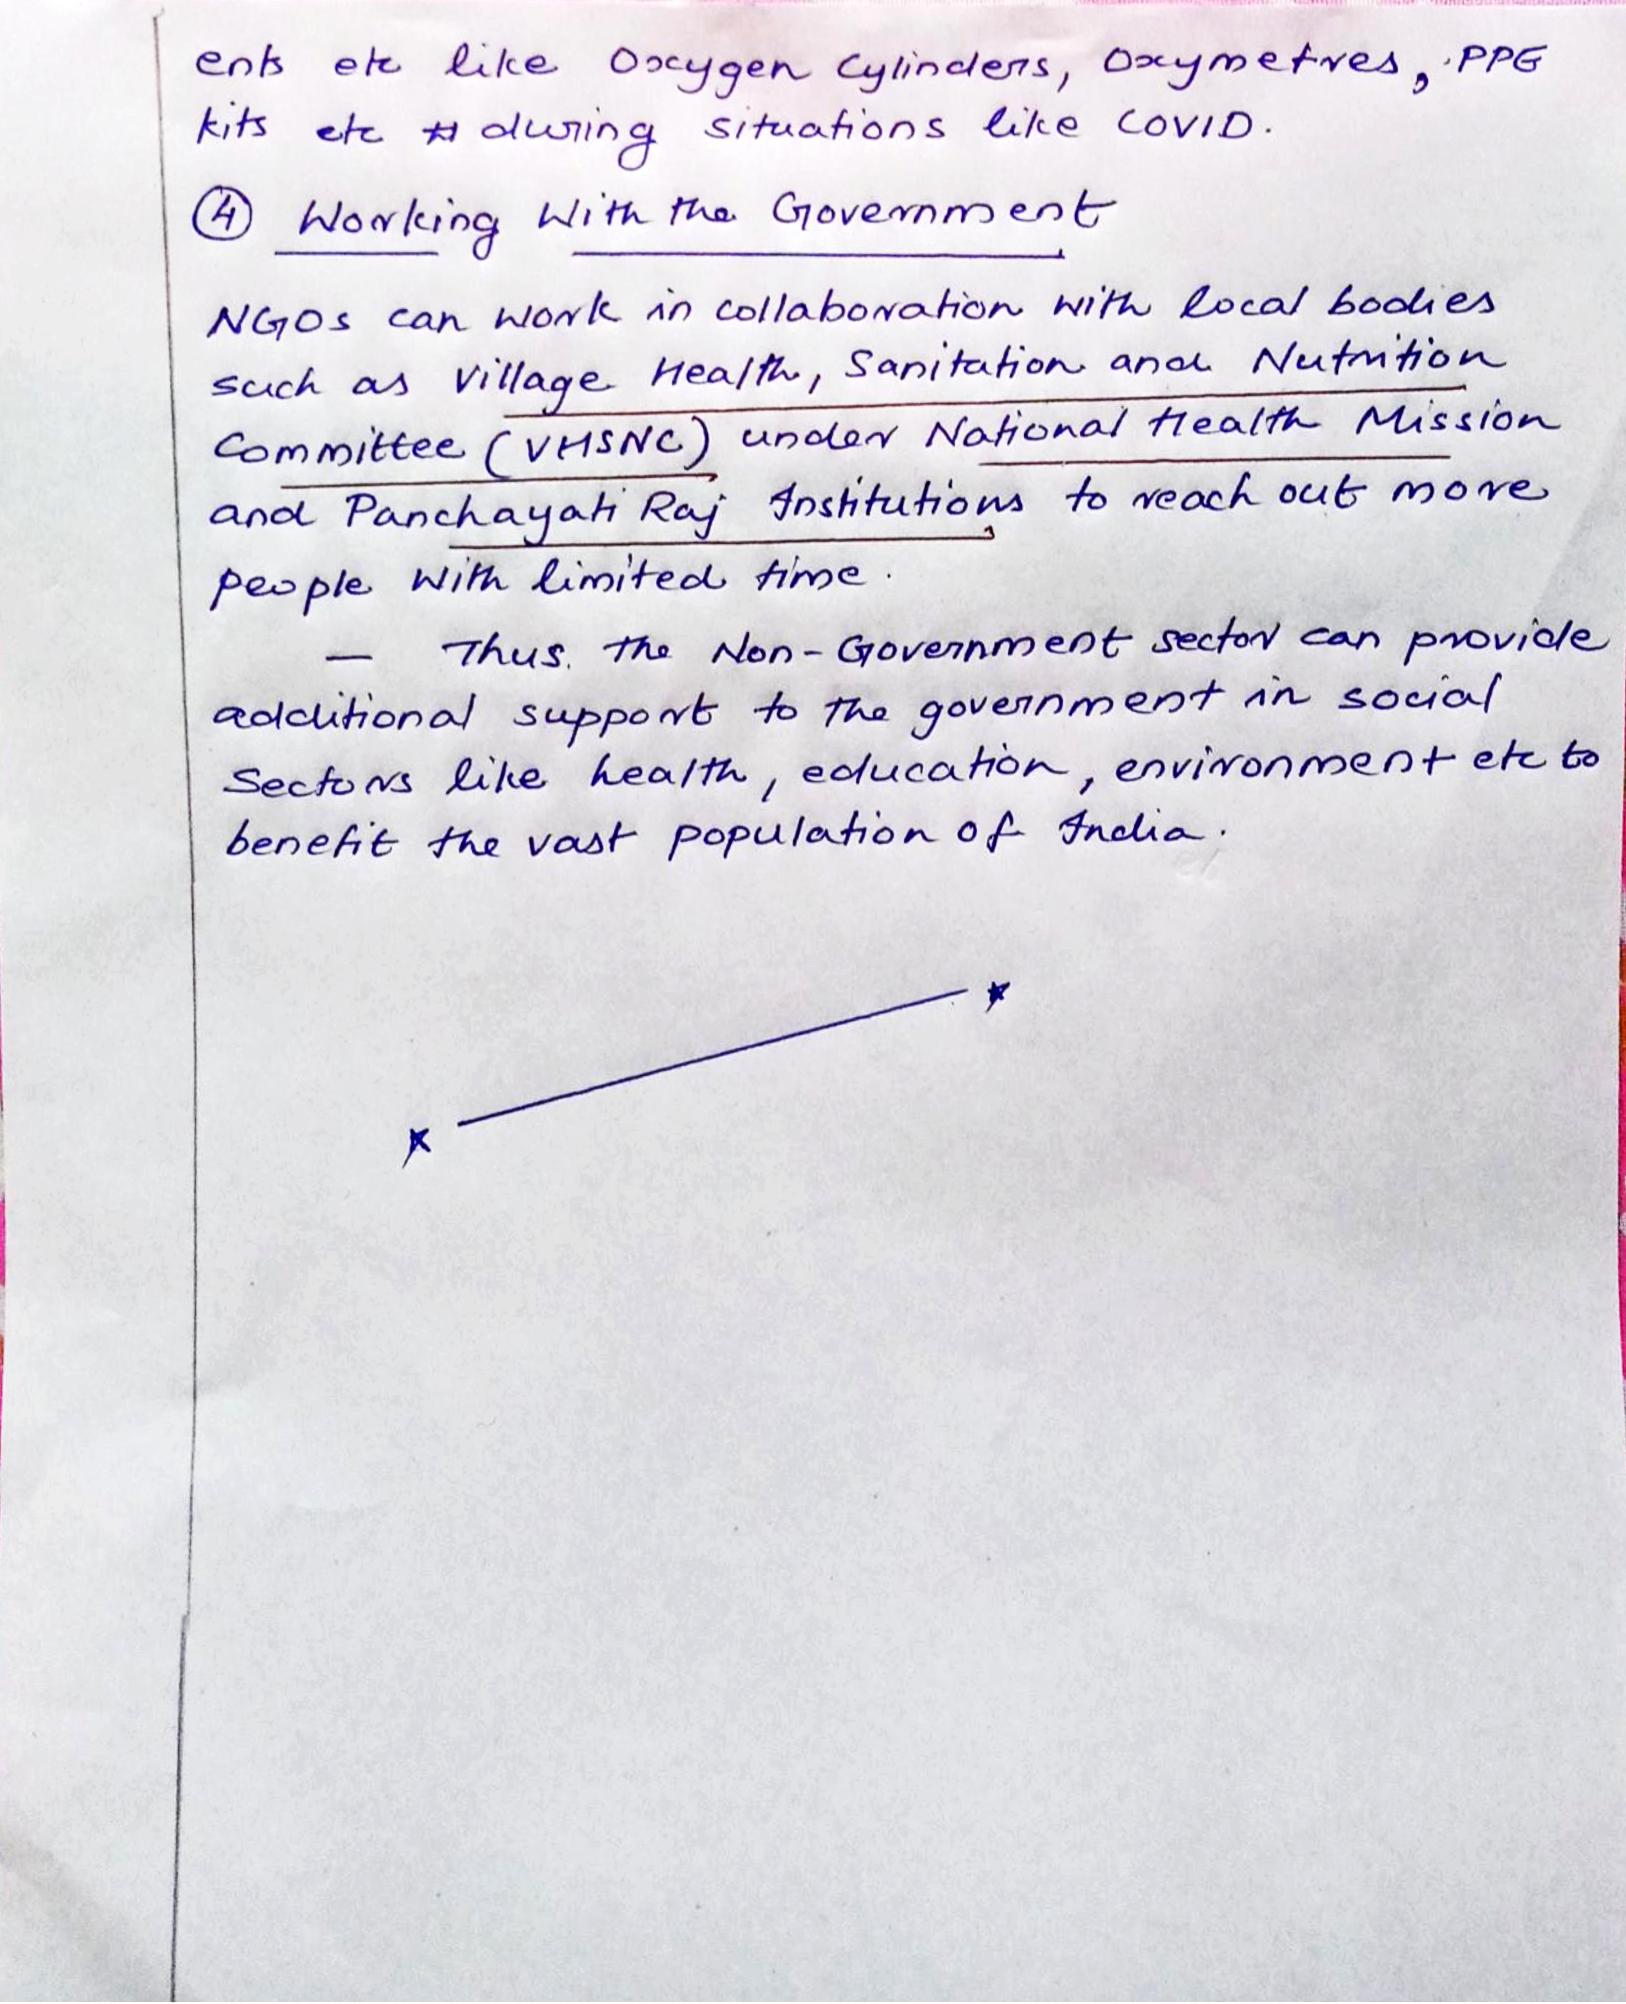 ents etc like Oxygen Cylinders, Oxymetres, PPE
kits etc during situations like COVID.
④ Working With the Government
NGOs can work in collaboration with local bodies
such as Village Health, Sanitation and Nutrition
Committee (VHSNC) under National Health Mission
and Panchayati Raj Institutions to reach out more
people with limited time.
— Thus. the Non-Government sector can provide
additional support to the government in social
Sectors like health, education, environment etc to
benefit the vast population of India.